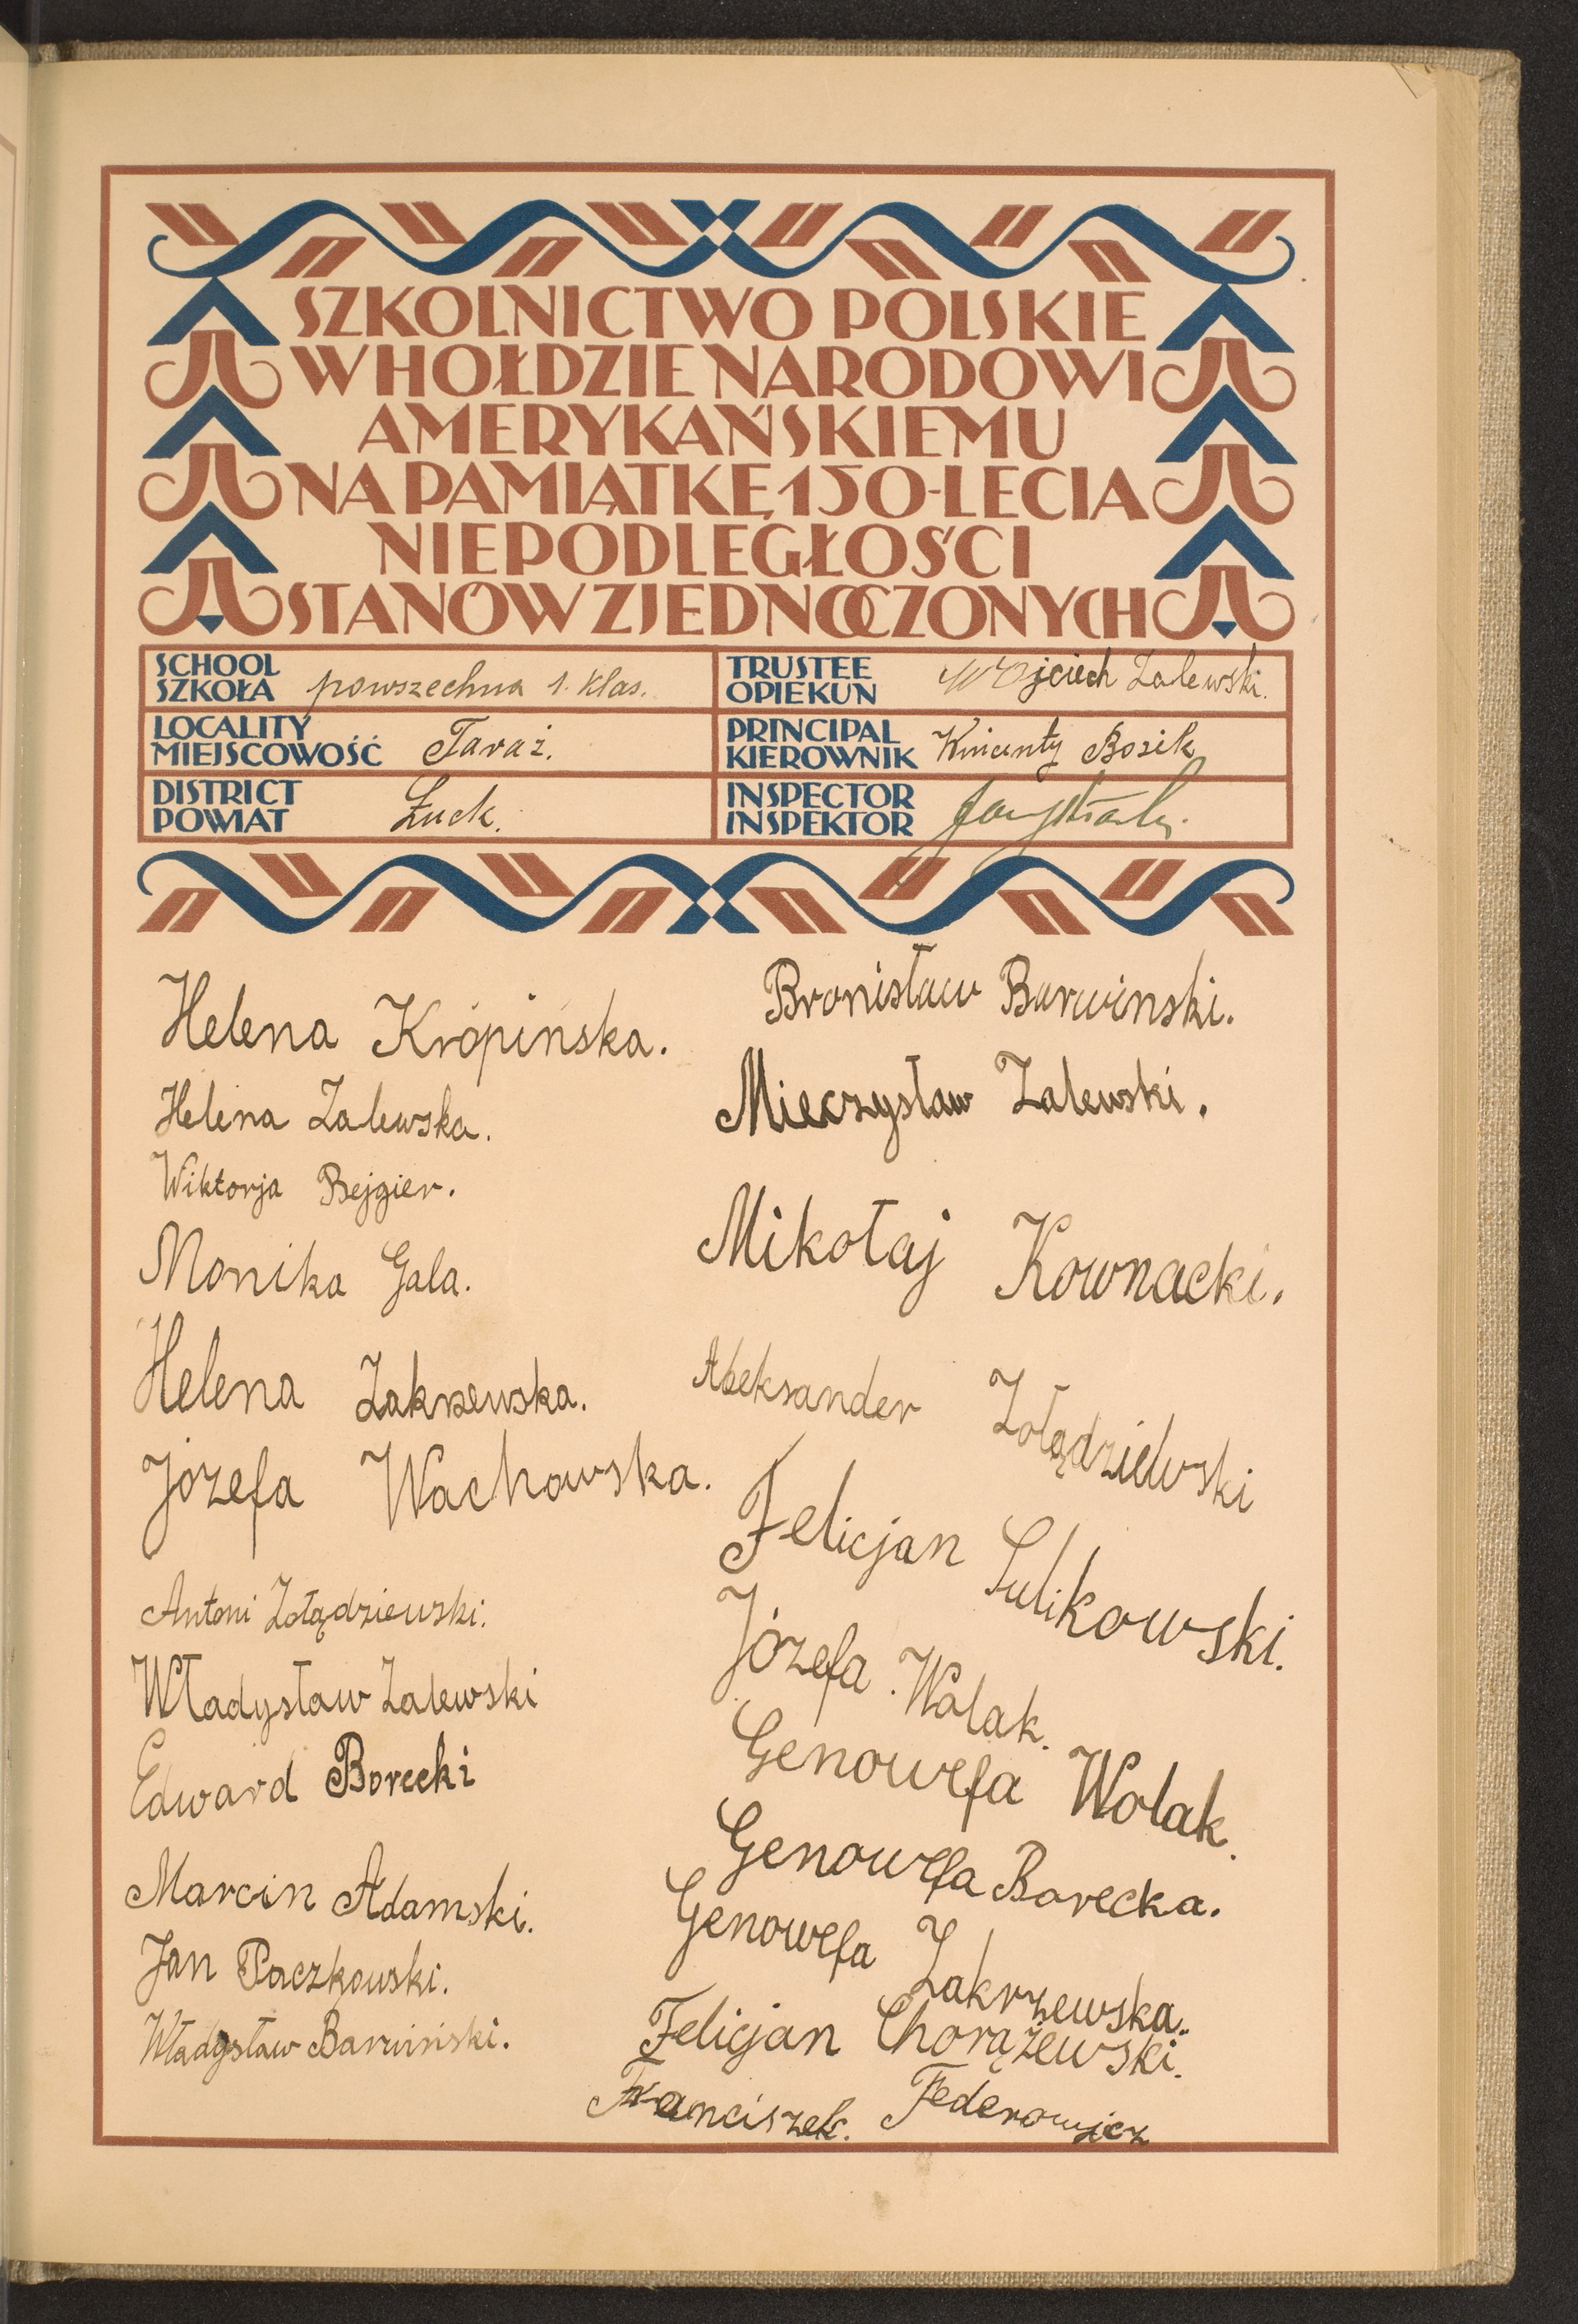 SZKOLNICTWO POLSKIE
W HOŁDZIE NARODOWI
AMERYKAŃSKIEMU
NA PAMIĄTKĘ 150-LECIA
NIEPODLEGŁOŚCI
STANÓW ZJEDNOCZONYCH
SCHOOL
SZKOŁA powszechna 1. klas.
LOCALITY
MIEJSCOWOŚĆ Taraż.
DISTRICT
POWIAT Łuck.
TRUSTEE
OPIEKUN Wojciech Zalewski.
PRINCIPAL
KIEROWNIK Wincenty Bosik
INSPECTOR
INSPEKTOR
Helena Krópińska.
Helena Zalewska.
Wiktorja Bejgier.
Monika Gala.
Helena Zakrzewska.
Józefa Wachowska.
Antoni Zołądziewski.
Władysław Zalewski
Edward Borecki
Marcin Adamski.
Jan Paczkowski.
Władysław Barwiński.
Bronisław Barwinski.
Mieczysław Zalewski.
Mikołaj Kownacki.
Aleksander Zołądziewski
Felicjan Sulikowski.
Józefa Wolak.
Genowefa Wolak.
Genowefa Borecka.
Genowefa Zakrzewska.
Felicjan Chorążewski.
Franciszek. Federowicz